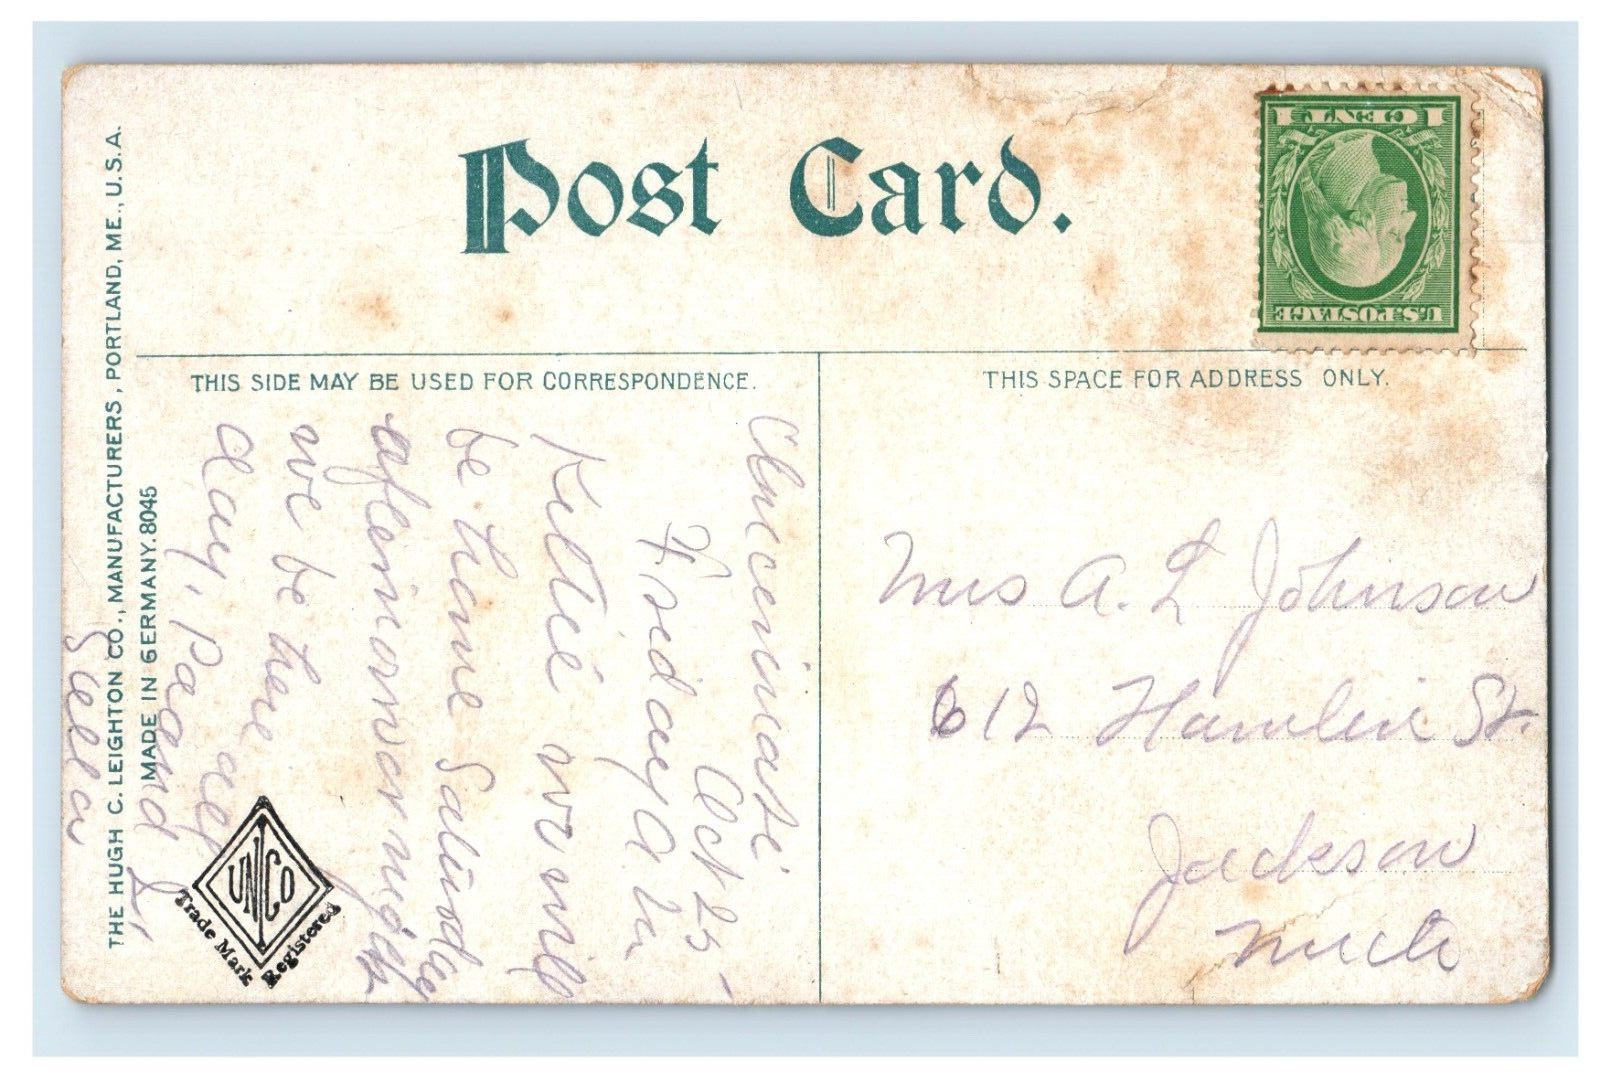 Post Card.
1 CENT 1
U.S. POSTAGE
THIS SIDE MAY BE USED FOR CORRESPONDENCE.
THIS SPACE FOR ADDRESS ONLY.
THE HUGH C. LEIGHTON CO., MANUFACTURERS, PORTLAND, ME., U.S.A.
MADE IN GERMANY. 8045
Cincinnati
Oct 25-
Friday A M
Kittie we will
be home Saturday
afternoon or night
we be there all
day, Pa and I,
Stella
UNCO
Trade Mark Registered
Mrs A. L Johnson
612 Hamlin St.
Jackson
Mich